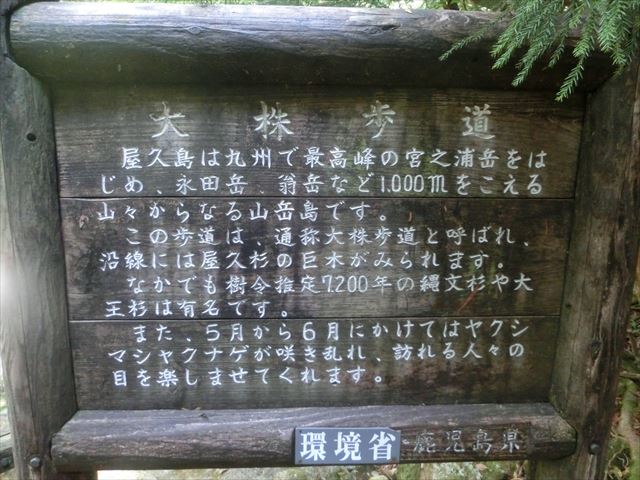 大株歩道
屋久島は九州で最高峰の宮之浦岳をは
じめ、永田岳、翁岳など1,000mをこえる
山々からなる山岳島です。
この歩道は、通称大株歩道と呼ばれ、
沿線には屋久杉の巨木がみられます。
なかでも樹令推定7,200年の縄文杉や大
王杉は有名です。
また、5月から6月にかけてはヤクシ
マシャクナゲが咲き乱れ、訪れる人々の
目を楽しませてくれます。
環境省 鹿児島県